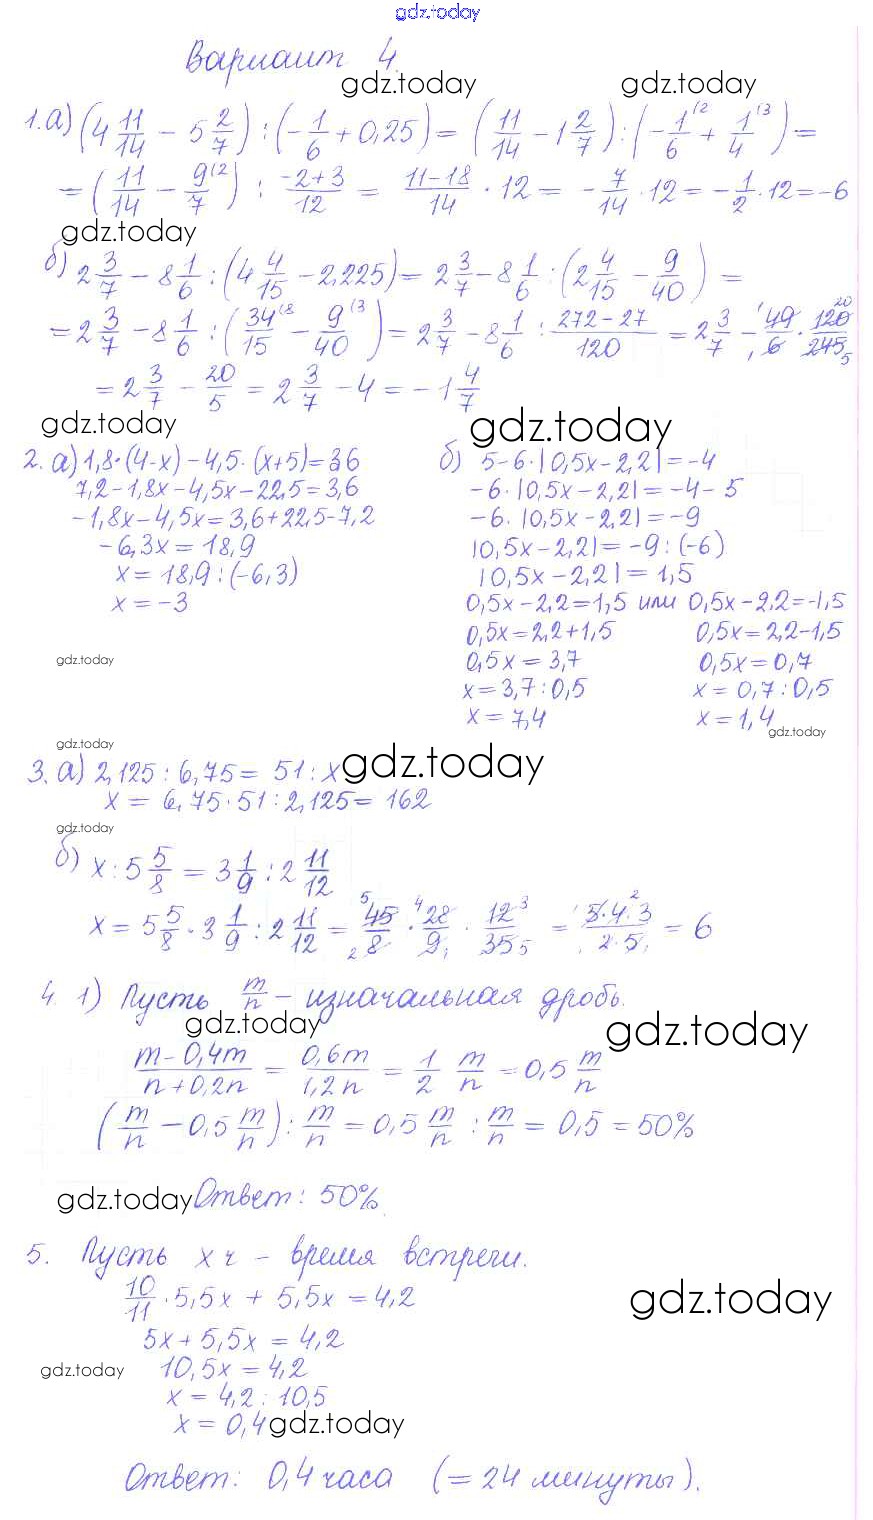 gdz.today
Вариант 4.
gdz.today gdz.today
1. а) (4 11/14 - 5 2/7) : (-1/6 + 0,25) = (11/14 - 1 2/7) : (-1/6^(2 + 1/4^(3) =
= (11/14 - 9/7^(2) : (-2+3)/12 = (11-18)/14 · 12 = -7/14 · 12 = -1/2 · 12 = -6
gdz.today
б) 2 3/7 - 8 1/6 : (4 4/15 - 2,225) = 2 3/7 - 8 1/6 : (2 4/15 - 9/40) =
= 2 3/7 - 8 1/6 : (34/15^(8 - 9/40^(3) = 2 3/7 - 8 1/6 : (272-27)/120 = 2 3/7 - 49/6 · 120/245
= 2 3/7 - 20/5 = 2 3/7 - 4 = -1 4/7
gdz.today gdz.today
2. а) 1,8·(4-x) - 4,5·(x+5) = 3,6
7,2 - 1,8x - 4,5x - 22,5 = 3,6
-1,8x - 4,5x = 3,6 + 22,5 - 7,2
-6,3x = 18,9
x = 18,9 : (-6,3)
x = -3
б) 5 - 6·|0,5x - 2,2| = -4
-6·|0,5x - 2,2| = -4 - 5
-6·|0,5x - 2,2| = -9
|0,5x - 2,2| = -9 : (-6)
|0,5x - 2,2| = 1,5
0,5x - 2,2 = 1,5 или 0,5x - 2,2 = -1,5
0,5x = 2,2 + 1,5 0,5x = 2,2 - 1,5
0,5x = 3,7 0,5x = 0,7
x = 3,7 : 0,5 x = 0,7 : 0,5
x = 7,4 x = 1,4
gdz.today
gdz.today
gdz.today
3. а) 2,125 : 6,75 = 51 : x gdz.today
x = 6,75 · 51 : 2,125 = 162
gdz.today
б) x : 5 5/8 = 3 1/9 : 2 11/12
x = 5 5/8 · 3 1/9 : 2 11/12 = 45/8 · 28/9 · 12/35 = (5·4·3)/(2·5) = 6
4. 1) Пусть m/n - изначальная дробь.
gdz.today gdz.today
(m-0,4m)/(n+0,2n) = 0,6m/1,2n = 1/2 m/n = 0,5 m/n
(m/n - 0,5 m/n) : m/n = 0,5 m/n : m/n = 0,5 = 50%
gdz.today Ответ: 50%.
5. Пусть x ч - время встречи.
10/11 · 5,5x + 5,5x = 4,2
gdz.today
5x + 5,5x = 4,2
gdz.today 10,5x = 4,2
x = 4,2 : 10,5
x = 0,4 gdz.today
Ответ: 0,4 часа (= 24 минуты).